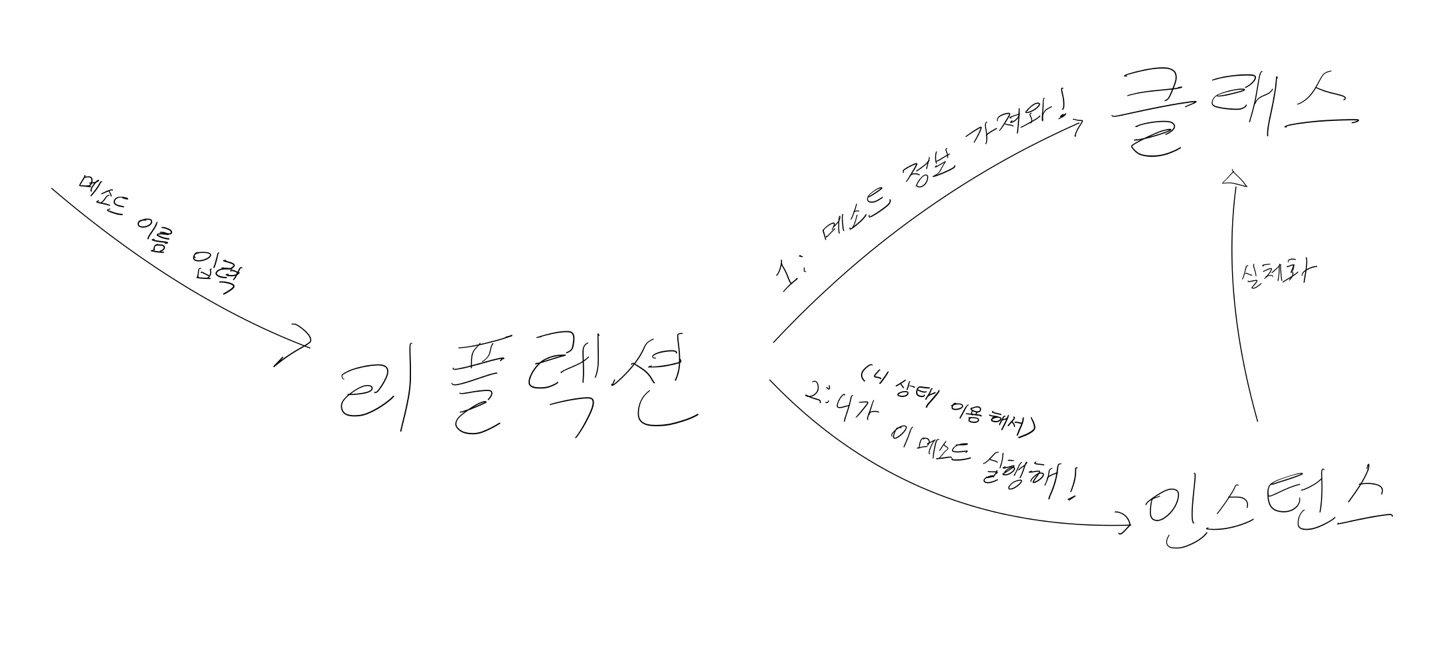 메소드 이름 입력
리플렉션
1: 메소드 정보 가져와!
클래스
실체화
(니 상태 이용해서)
2: 니가 이 메소드 실행해!
인스턴스